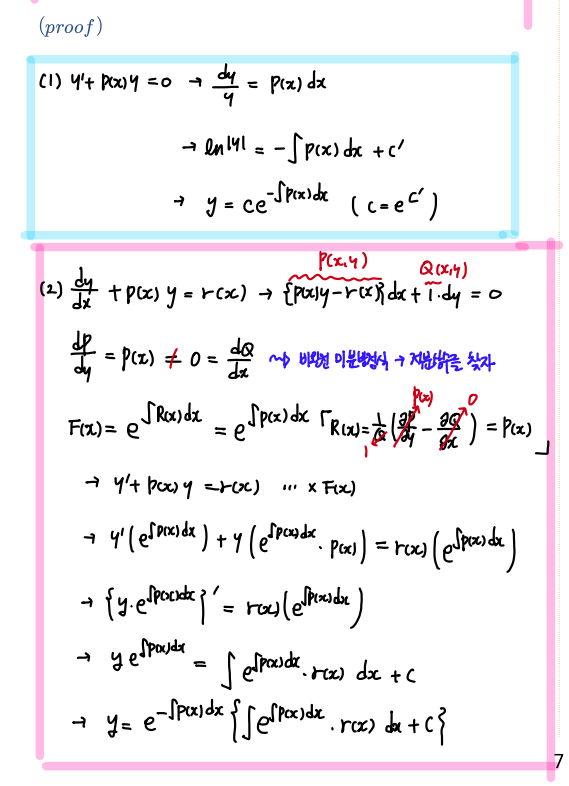 (proof)
(1) y'+ p(x)y = 0 → dy/y = p(x) dx
→ ln|y| = -∫p(x) dx + c'
→ y = ce^{-∫p(x)dx} ( c = e^{c'} )
P(x,y) Q(x,y)
(2) dy/dx + p(x) y = r(x) → {p(x)y - r(x)}dx + 1·dy = 0
dP/dy = p(x) ≠ 0 = dQ/dx ⇝ 비완전 미분방정식 → 적분인수를 찾자
F(x) = e^{∫R(x)dx} = e^{∫p(x)dx} 「R(x) = 1/Q (∂P/∂y - ∂Q/∂x) = p(x)」
1 p(x) 0
→ y'+ p(x) y = r(x) ... × F(x)
→ y'(e^{∫p(x)dx}) + y(e^{∫p(x)dx} · p(x)) = r(x)(e^{∫p(x)dx})
→ {y·e^{∫p(x)dx}}' = r(x)(e^{∫p(x)dx})
→ y e^{∫p(x)dx} = ∫e^{∫p(x)dx} · r(x) dx + c
→ y = e^{-∫p(x)dx} {∫e^{∫p(x)dx} · r(x) dx + c}
7